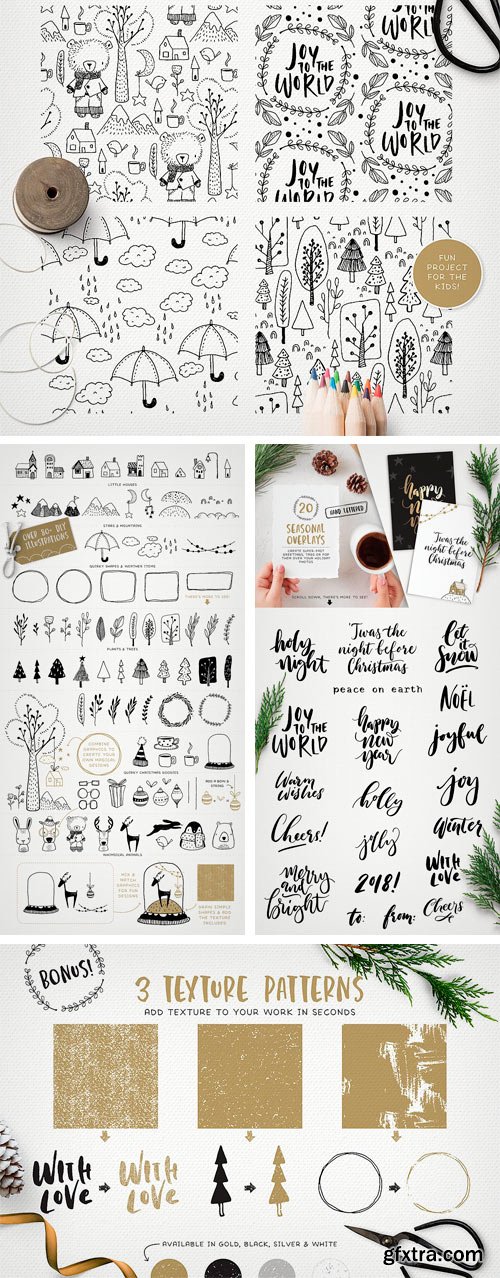 JOY
TO THE
WORLD
JOY
TO THE
WORLD
JOY
TO THE
WORLD
FUN
PROJECT
FOR THE
KIDS!
LITTLE HOUSES
STARS & MOUNTAINS
OVER 80+ DIY
ILLUSTRATIONS
QUIRKY SHAPES & WINTER ITEMS
THERE'S MORE TO SEE!
PLANTS & TREES
COMBINE
GRAPHICS TO
CREATE YOUR
OWN MAGICAL
DESIGNS
QUIRKY CHRISTMAS GOODIES
ADD A BOW &
STRING
WHIMSICAL ANIMALS
MIX &
MATCH
GRAPHICS
FOR FUN
DESIGNS
SIMPLE
SHAPES & ADD
THE TEXTURE
INCLUDED
20
SEASONAL
OVERLAYS
CREATE SUPER-FAST
GREETINGS, TAGS OR POP
THEM OVER YOUR HOLIDAY
PHOTOS
HAND LETTERED
SCROLL DOWN, THERE'S MORE TO SEE!
happy
new
'Twas the
night before
Christmas
holy
night
'Twas the
night before
Christmas
Let
it
Snow
peace on earth
NOËL
JOY
TO THE
WORLD
happy
new
year
joyful
Warm
wishes
holly
joy
Cheers!
jolly
Winter
merry
and
bright
2018!
WITH
LOVE
to:
from:
Cheers
BONUS!
3 TEXTURE PATTERNS
ADD TEXTURE TO YOUR WORK IN SECONDS
WITH
LOVE
WITH
LOVE
AVAILABLE IN GOLD, BLACK, SILVER & WHITE
gfxtra.com